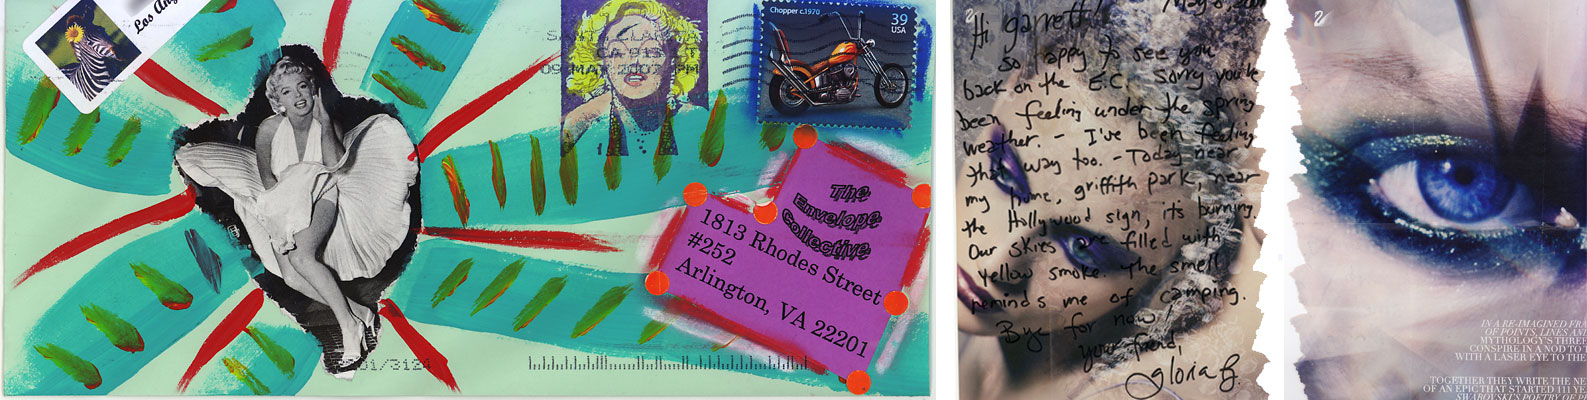 Los Ang
SANTA CLARITA
CA 913 1 T
09 MAY 2007 PM
Chopper c.1970
39
USA
The
Envelope
Collective
1813 Rhodes Street
#252
Arlington, VA 22201
01/3124
Hi garrett!
May 8, 200
So happy to see you
back on the E.C. Sorry you've
been feeling under the spring
weather. - I've been feeling
that way too. - Today near
my home, griffith park, near
the Hollywood sign, it's burning.
Our skies are filled with
yellow smoke. The smell
reminds me of camping.
Bye for now!
your friend,
Gloria G.
IN A RE-IMAGINED FRA
OF POINTS, LINES AN
MYTHOLOGY'S THREE
CONSPIRE IN A NOD TO T
WITH A LASER EYE TO THE
TOGETHER THEY WRITE THE NE
OF AN EPIC THAT STARTED 111 YE
SWAROVSKI'S POETRY OF P